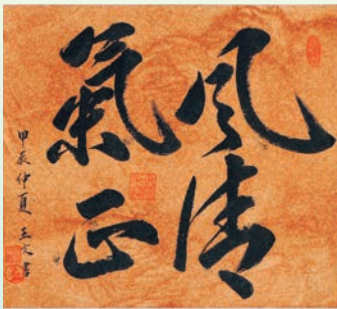 風清
氣正
甲辰仲夏王文書